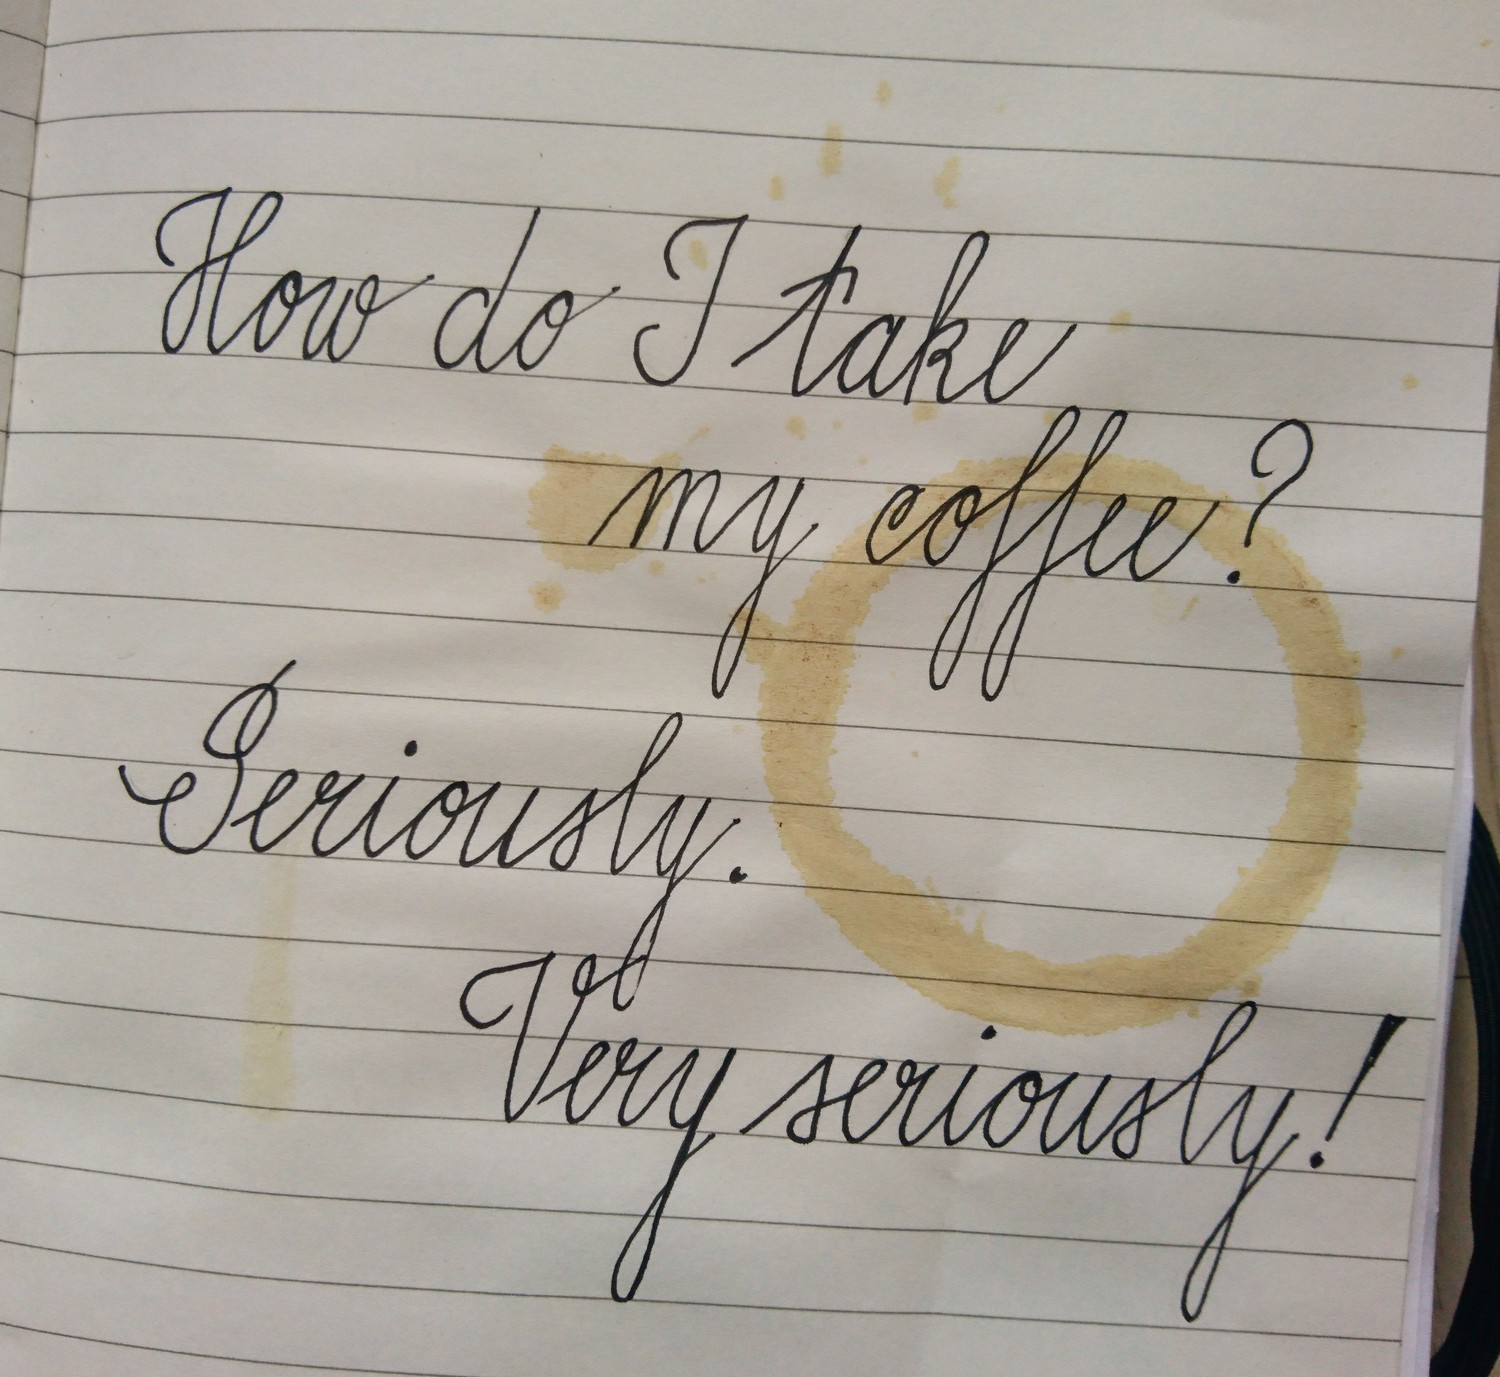 How do I take
my coffee?
Seriously.
Very seriously!